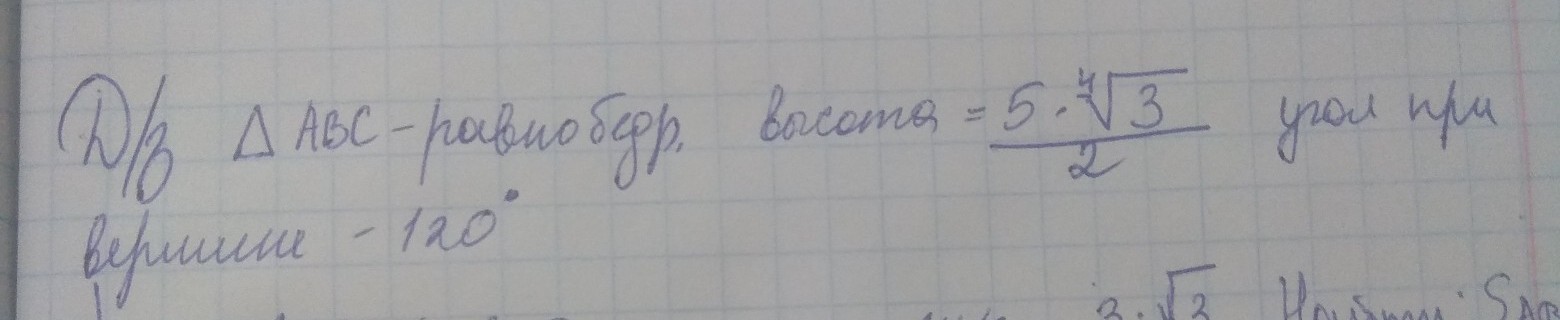 Д/з △ ABC - равнобедр. высота = 5·∜3/2 угол при
вершине - 120°
3·√3 Найти: S